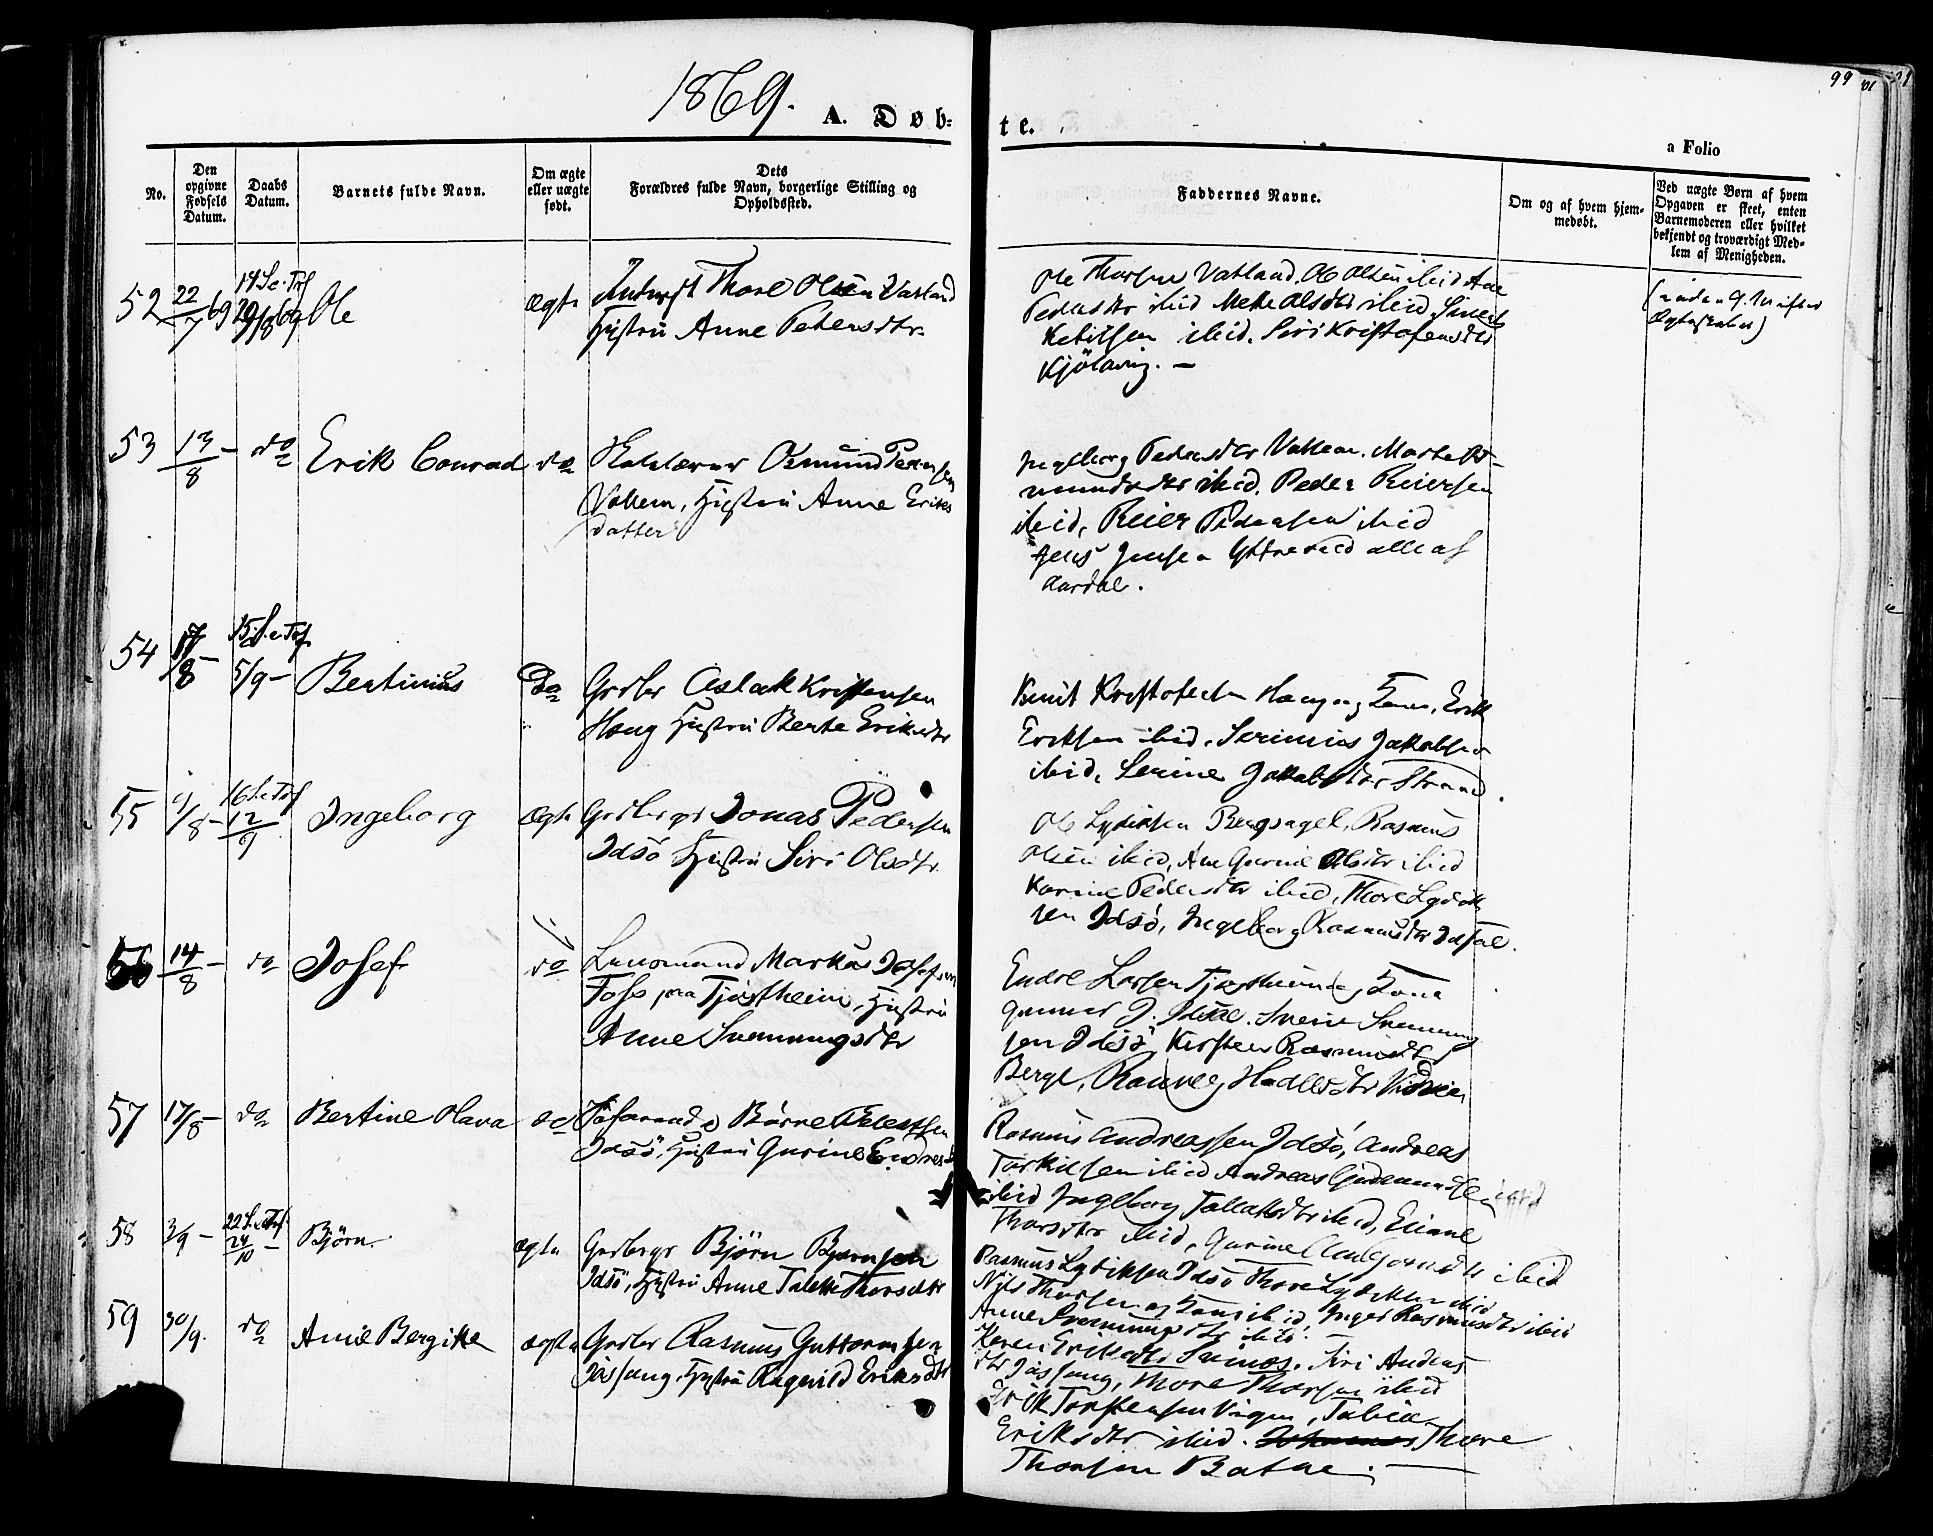 1869.
A. Døb-
te.
a Folio
99
No.
Den opgivne Fødsels Datum.
Daabs Datum.
Barnets fulde Navn.
Om ægte eller uægte født.
Dets Forældres fulde Navn, borgerlige Stilling og Opholdssted.
Faddernes Navne.
Om og af hvem hjemmedøbt.
Ved uægte Børn af hvem Opgaven er skeet, enten Barnemoderen eller hvilket bekjendt og troværdigt Medlem af Menigheden.
52 22/7 69 14 S. e. Trf 29/8 69 Ole ægte Thore Olsen Vatland
Hustru Anne Pedersdtr
Ole Thorsen Vatland. Ole Olsen ibid Ane
Pedersdtr ibid Mette Olsdtr ibid Sivert
Ketilsen ibid. Siri Kristofersdtr
Kjølavig. —
53 13/8 – do Erik Conrad do Osmund Pedersen
Vallem, Hustru Anne Eriks
datter
Ingeborg Pedersdtr Vallem. Marte Os-
mundsdtr ibid. Peder Reiersen
ibid, Reier Pedersen ibid
Jens Jensen alle af
Aardal.
54 17/8 – 15 S. e. Trf 5/9 – Bertinius Do Grdbr Aslak Kristensen
Haug Hustru Berte Eriksdtr
Knut Kristofersen Haug og Kone, Erik
Eriksen ibid. Serinius Jakobsen
ibid, Serine Jakobsdtr Strand.
55 9/8 – 16 S. e. Trf 12/9 Ingeborg Ægte Grdbrgr Jonas Pedersen
Idsö Hustru Siri Olsdtr
Ole Lydiksen Bergsagel, Rasmus
Olsen ibid, Ane Gurine Olsdtr ibid
Karine Pedersdtr ibid, Thore Lydik
sen Idsö, Ingeborg Rasmusdtr Idsal.
56 14/8 – do Josef do Lensmand Markus Josefsen
Foss paa Tjøstheim, Hustru
Anne Svenningsdtr
Endre Larsen Tjøstheim og Kone
Gunnar J. Idsal. Svein Svenning
sen Idsö, Kirsten Rasmusdtr
Berge, Ranveg Hadlesdtr
57 17/8 – do Bertine Olava do Børne Tallaksen
Idsö, Hustru Gurine Endresd
Rasmus Andreassen Idsö, Andreas
Torkilsen ibid Andreas Gudmundsen
ibid Ingeborg Tallaksdtr ibid, Eliane
Thorsdtr ibid, Gurine ibid
58 3/9 – 22 S. e. Trf. 24/10 – Björn ægte Grdbrgr Björn Bjørnsen
Idsö, Hustru Anne Talette Thorsdtr
Rasmus Lydiksen Idsö Thore Lydiksen ibid
Nils Thorsen og Kone ibid, Inger Rasmusdtr ibid
Anne Svenningsdtr ibid.
59 30/9. do Anne Bergitte ægte Grdbr Rasmus Guttormsen
Jøssang, Hustru Ragnild Eriksdtr
Karen Eriksdtr. Siri Andreas
dtr Jøssang, Thore Thorsen ibid
Erik Torstensen Vigen, Tabite
Eriksdtr ibid. Johannes Thore
Thorsen Botne. —